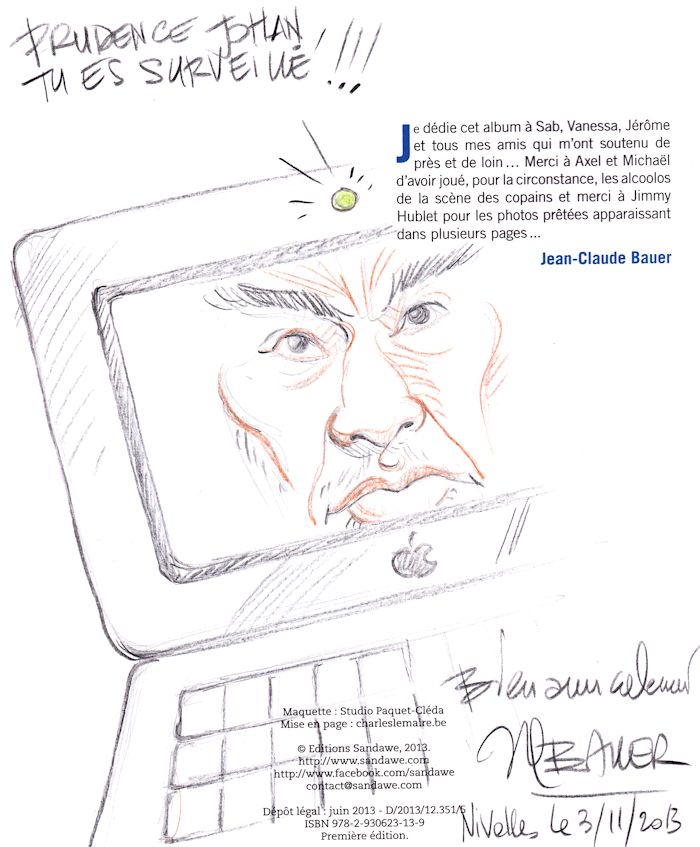 PRUDENCE JOHAN
TU ES SURVEILLÉ !!!
Je dédie cet album à Sab, Vanessa, Jérôme
et tous mes amis qui m'ont soutenu de
près et de loin... Merci à Axel et Michaël
d'avoir joué, pour la circonstance, les alcoolos
de la scène des copains et merci à Jimmy
Hublet pour les photos prêtées apparaissant
dans plusieurs pages...
Jean-Claude Bauer
Bien amicalement
BAUER
Nivelles le 3/11/2013
Maquette : Studio Paquet-Cléda
Mise en page : charleslemaire.be
© Editions Sandawe, 2013.
http://www.sandawe.com
http://www.facebook.com/sandawe
contact@sandawe.com
Dépôt légal : juin 2013 - D/2013/12.351/5
ISBN 978-2-930623-13-9
Première édition.